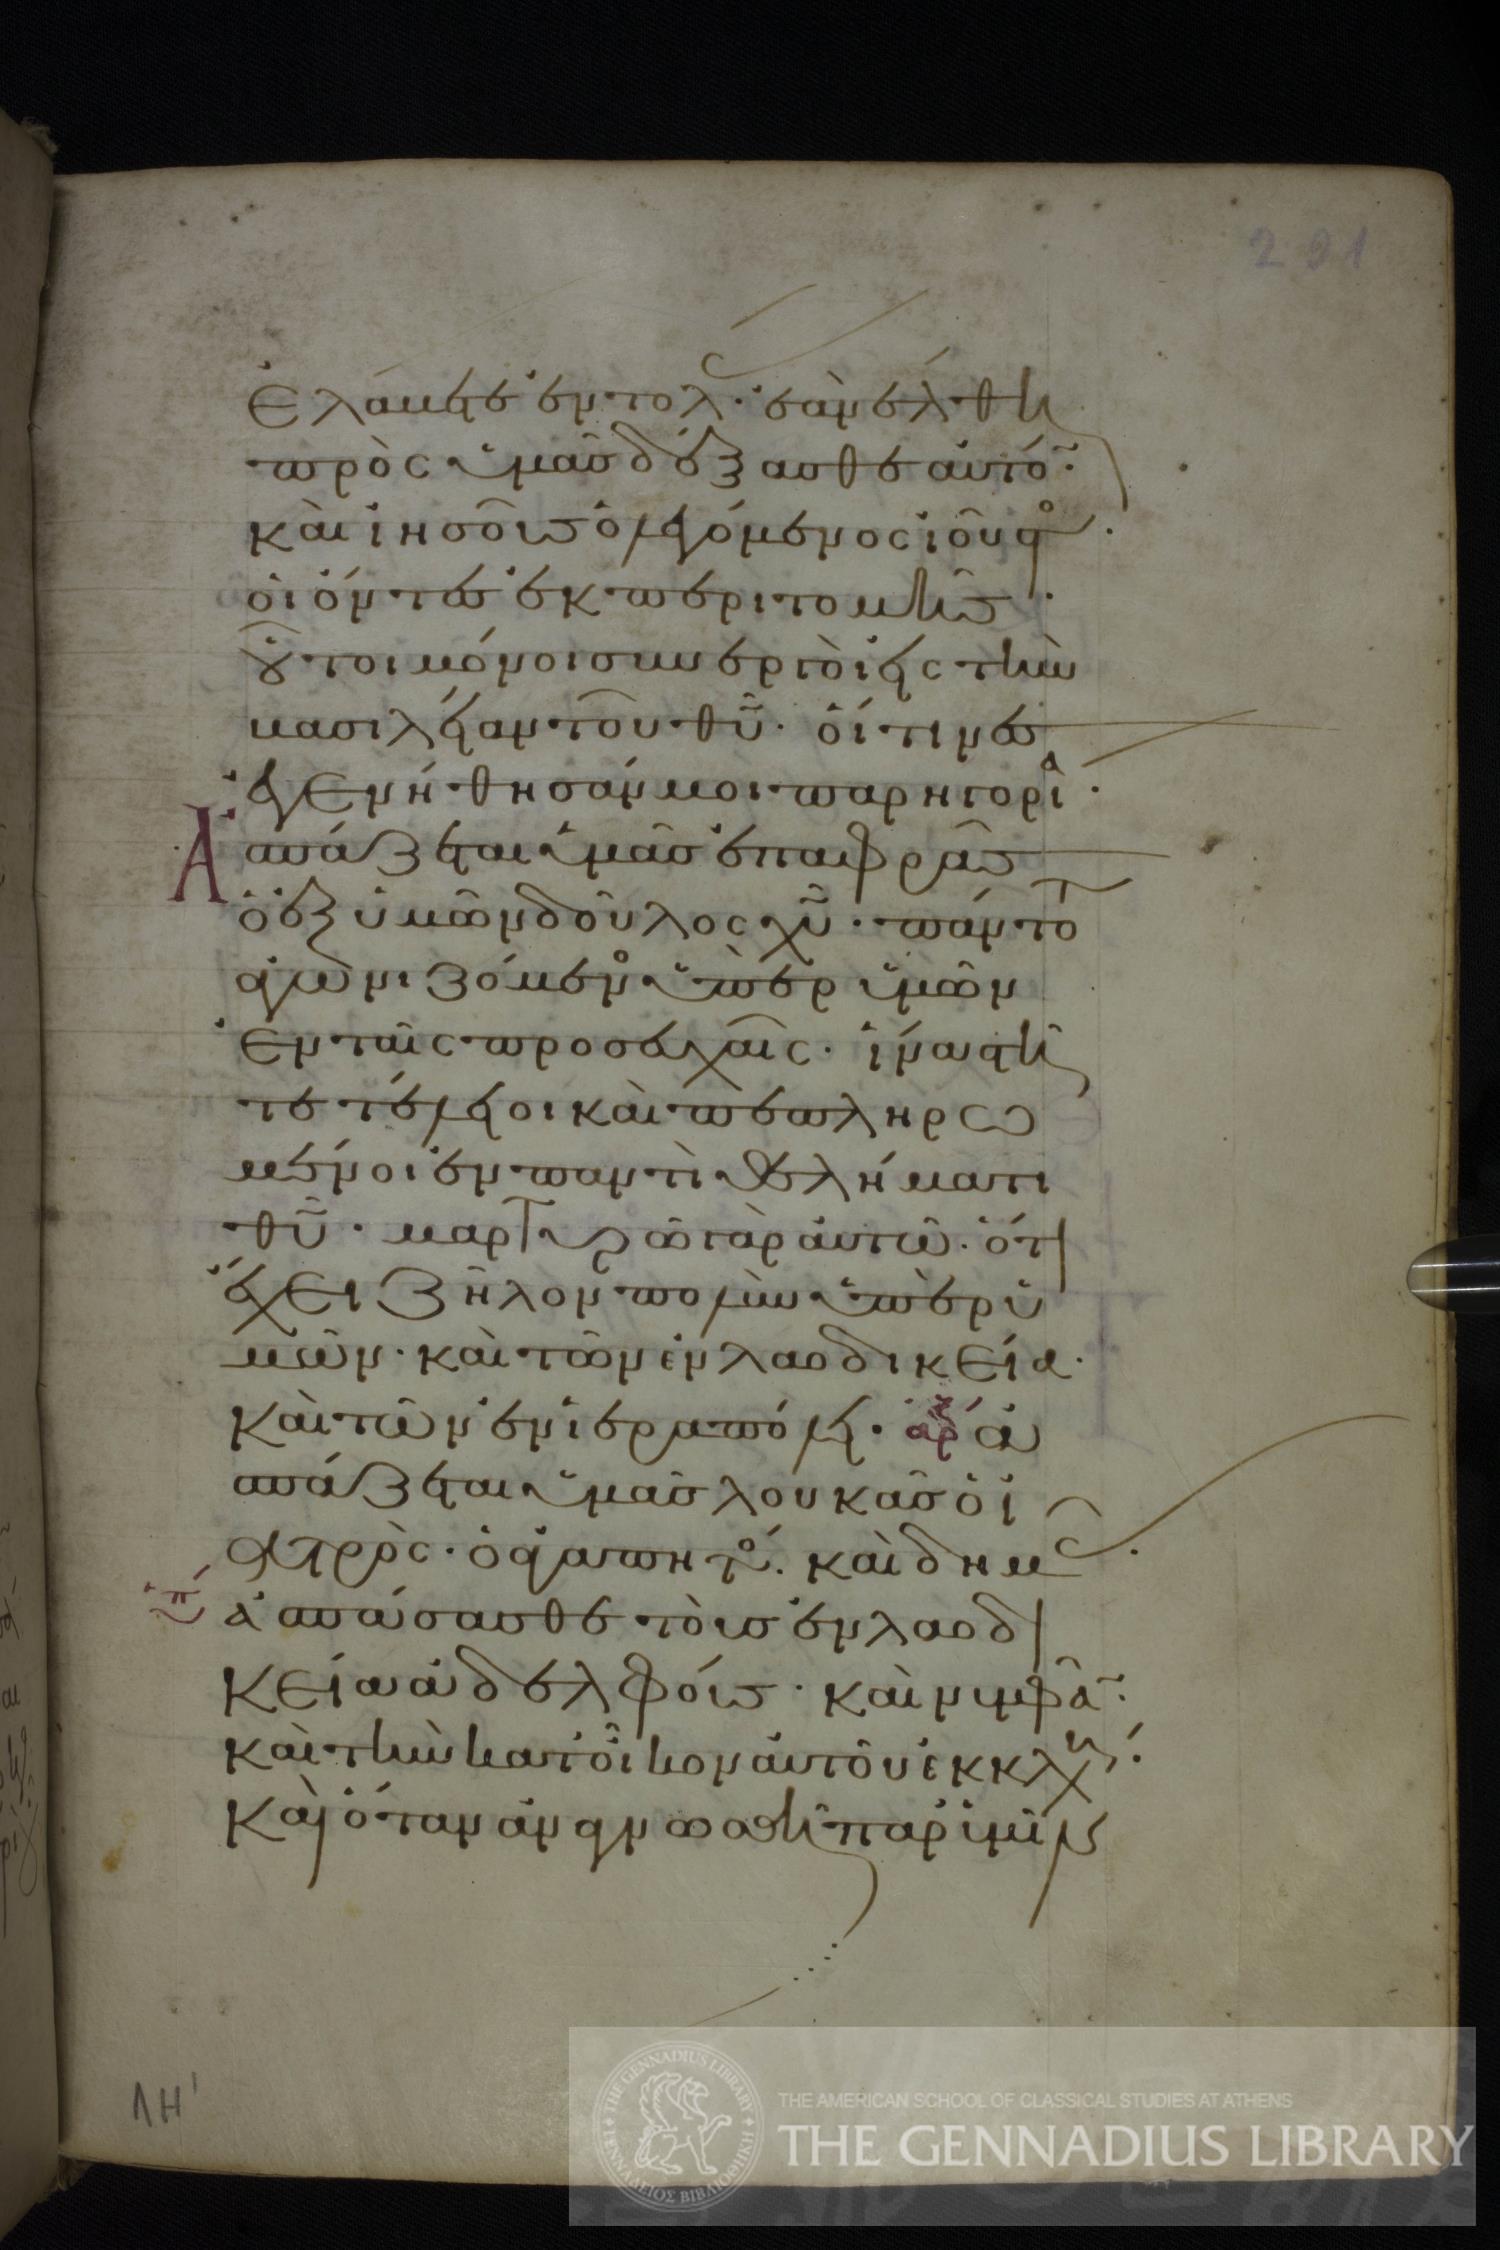 291
ἐλάβετε ἐντολ· ἐὰν ἔλθη
πρὸς ὑμᾶς δέξασθε αὐτό̃·
καὶ ἰησοῦς ὁ λεγόμενος ἰοῦστο·
οἱ ὄντες ἐκ περιτομῆς·
οὗτοι μόνοι συνεργοὶ εἰς τὴν
βασιλείαν τοῦ θῦ· οἵτινες
ἐγενήθησάν μοι παρηγορία·
Ἀσπάζεται ὑμᾶς ἐπαφρᾶς
ὁ ἐξ ὑμῶν δοῦλος χῦ· πάντοτ
ἀγωνιζόμενο ὑπὲρ ὑμῶν
ἐν ταῖς προσευχαῖς· ἵνα στῆ
τε τέλειοι καὶ πεπληρω
μένοι ἐν παντὶ θελήματι
θῦ· μαρτυρῶ γὰρ αὐτῶ· ὅτι
ἔχει ζῆλον πολὺν ὑπὲρ ὑ
μῶν· καὶ τῶν ἐν λαοδικεία·
καὶ τῶν ἐν ἱεραπόλει· ἀρξ ἀ
σπάζεται ὑμᾶς λουκᾶς ὁ ἰ
ατρὸς· ὁ ἀγαπητό· καὶ δημ
ἀσπάσασθε τοὺς ἐν λαοδι
κεία ἀδελφούς· καὶ νυμφᾶ̃·
καὶ τὴν κατ οἶκον αὐτοῦ ἐκκλη·
καὶ ὅταν ἀναγνωσθῆ παρ ὑμῖν
ΛΗ'
THE GENNADIUS LIBRARY
ΓΕΝΝΑΔΕΙΟΣ ΒΙΒΛΙΟΘΗΚΗ
THE AMERICAN SCHOOL OF CLASSICAL STUDIES AT ATHENS
THE GENNADIUS LIBRARY